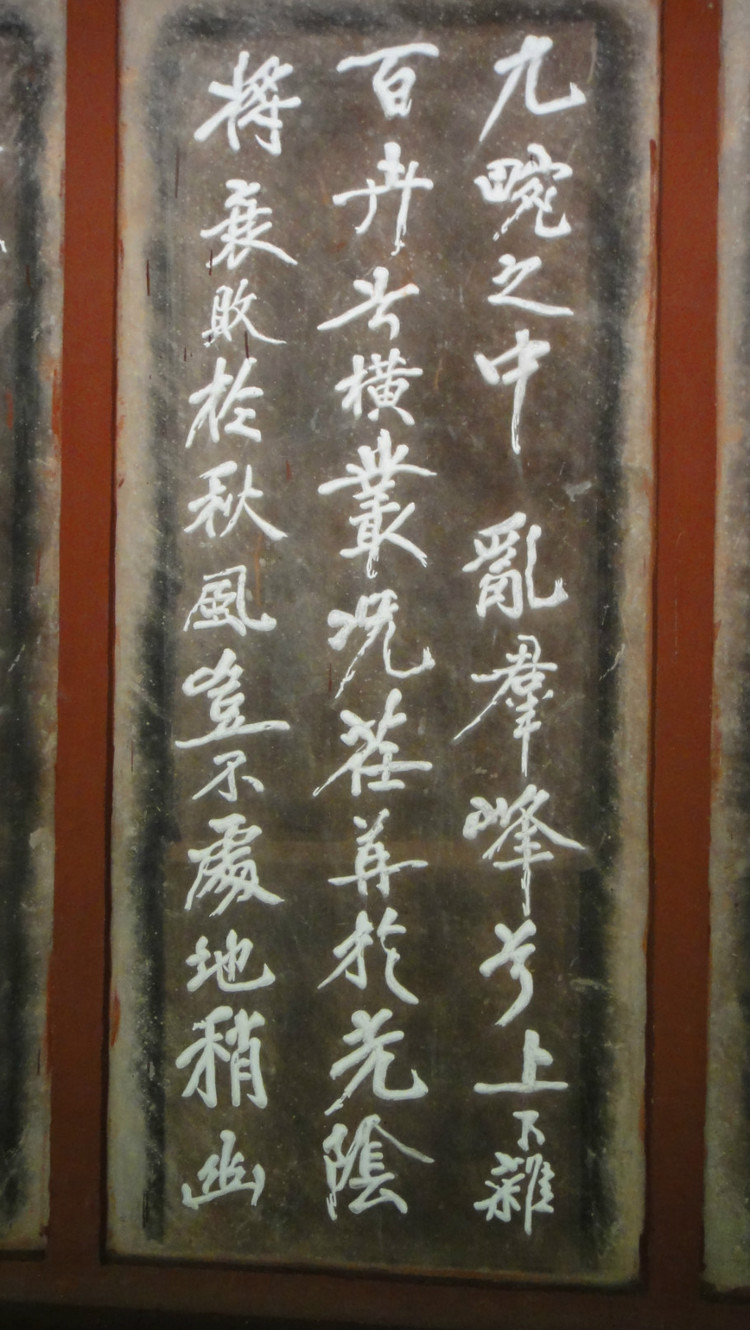 九畹之中亂羣峰兮上下雜
百卉兮橫叢况荏苒於光陰
將衰敗於秋風豈不處地稍幽